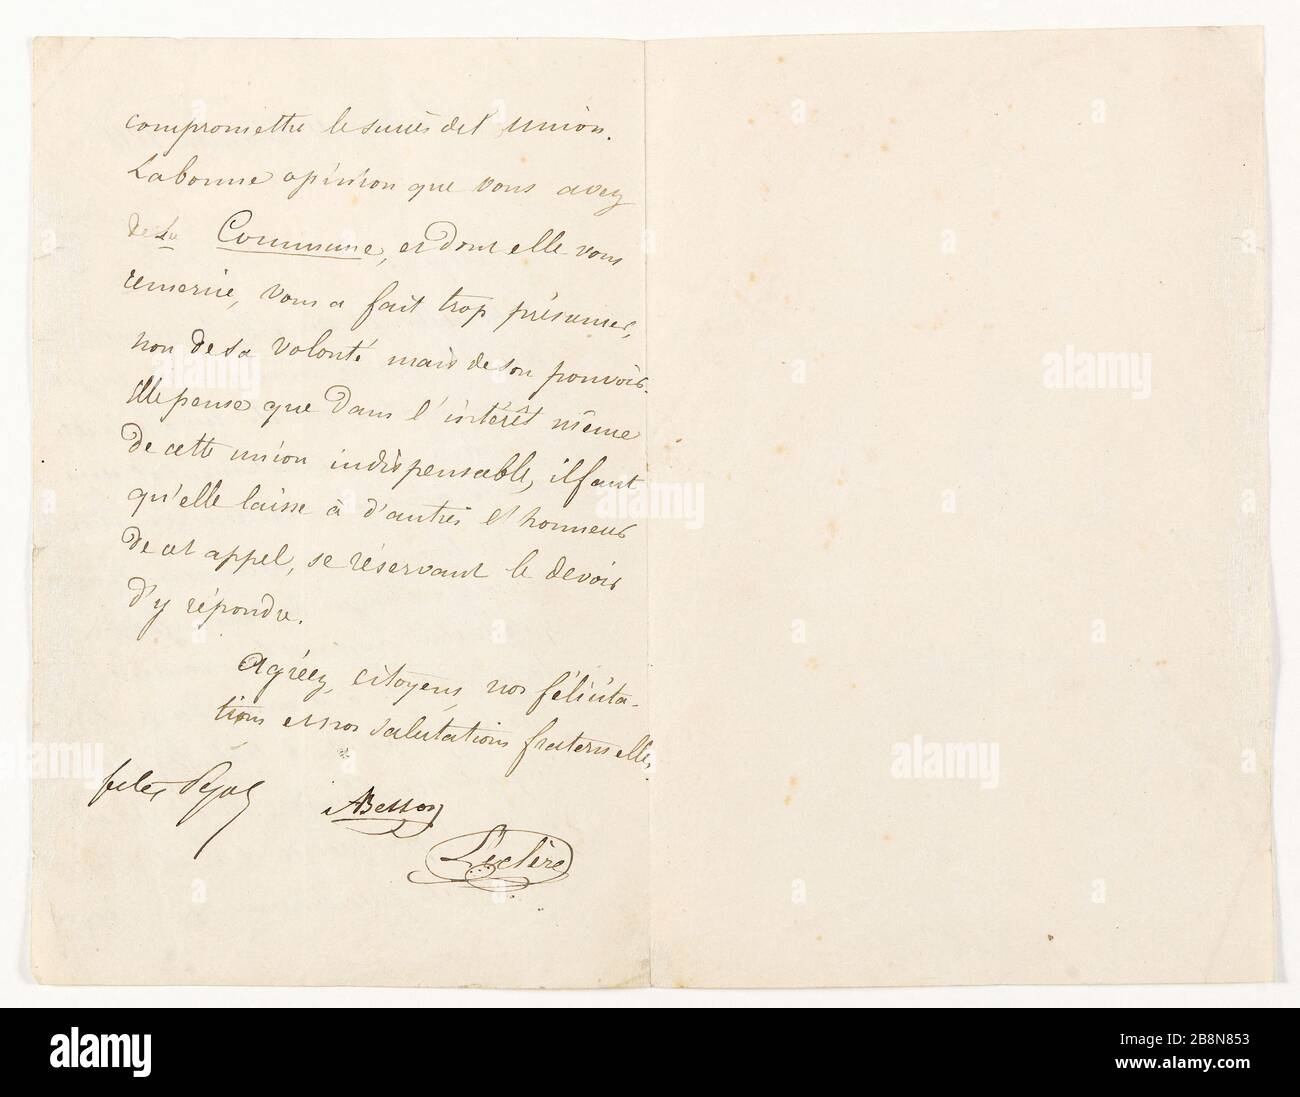 compromettre le succès de l'union.
La bonne opinion que vous avez
de la Commune, et dont elle vous
remercie, vous a fait trop présumer,
non de sa volonté mais de son pouvoir.
Elle pense que dans l'intérêt même
de cette union indispensable, il faut
qu'elle laisse à d'autres l'honneur
de cet appel, se réservant le devoir
d'y répondre.
Agréez, citoyens, nos félicita-
tions et nos salutations fraternelles,
felix Pyat
ABesson
Leclère
alamy
Image ID: 2B8N853
www.alamy.com